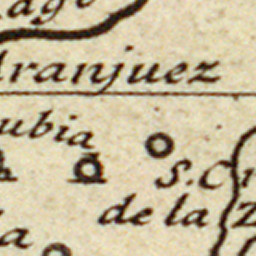 ago
Aranjuez
ubia
S. Cr
de la Z
a